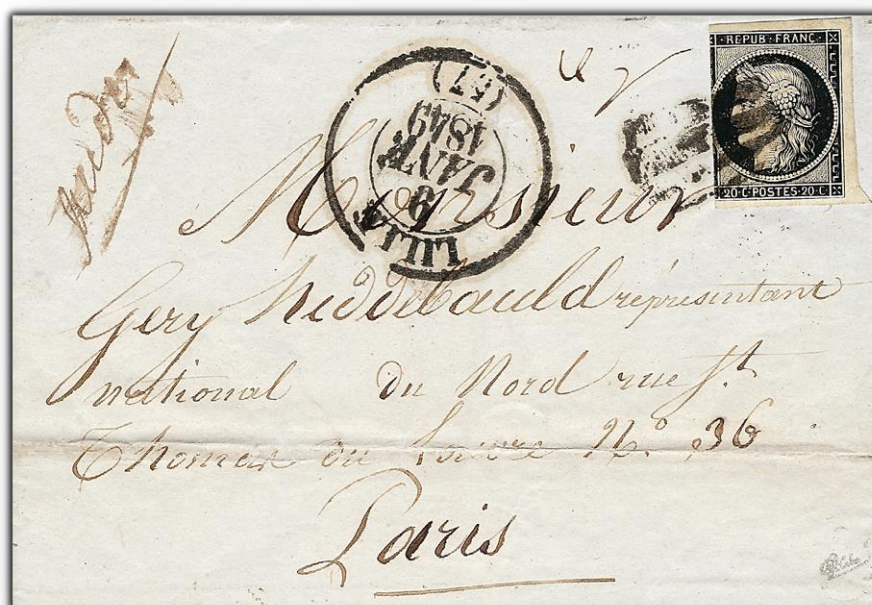 REPUB·FRANC·
20·C·POSTES·20·C
LILLE
9
JANV.
1849
(57)
Monsieur
Gery Heddebauld représentant
national du Nord rue St
Thomas du Louvre No. 36
Paris